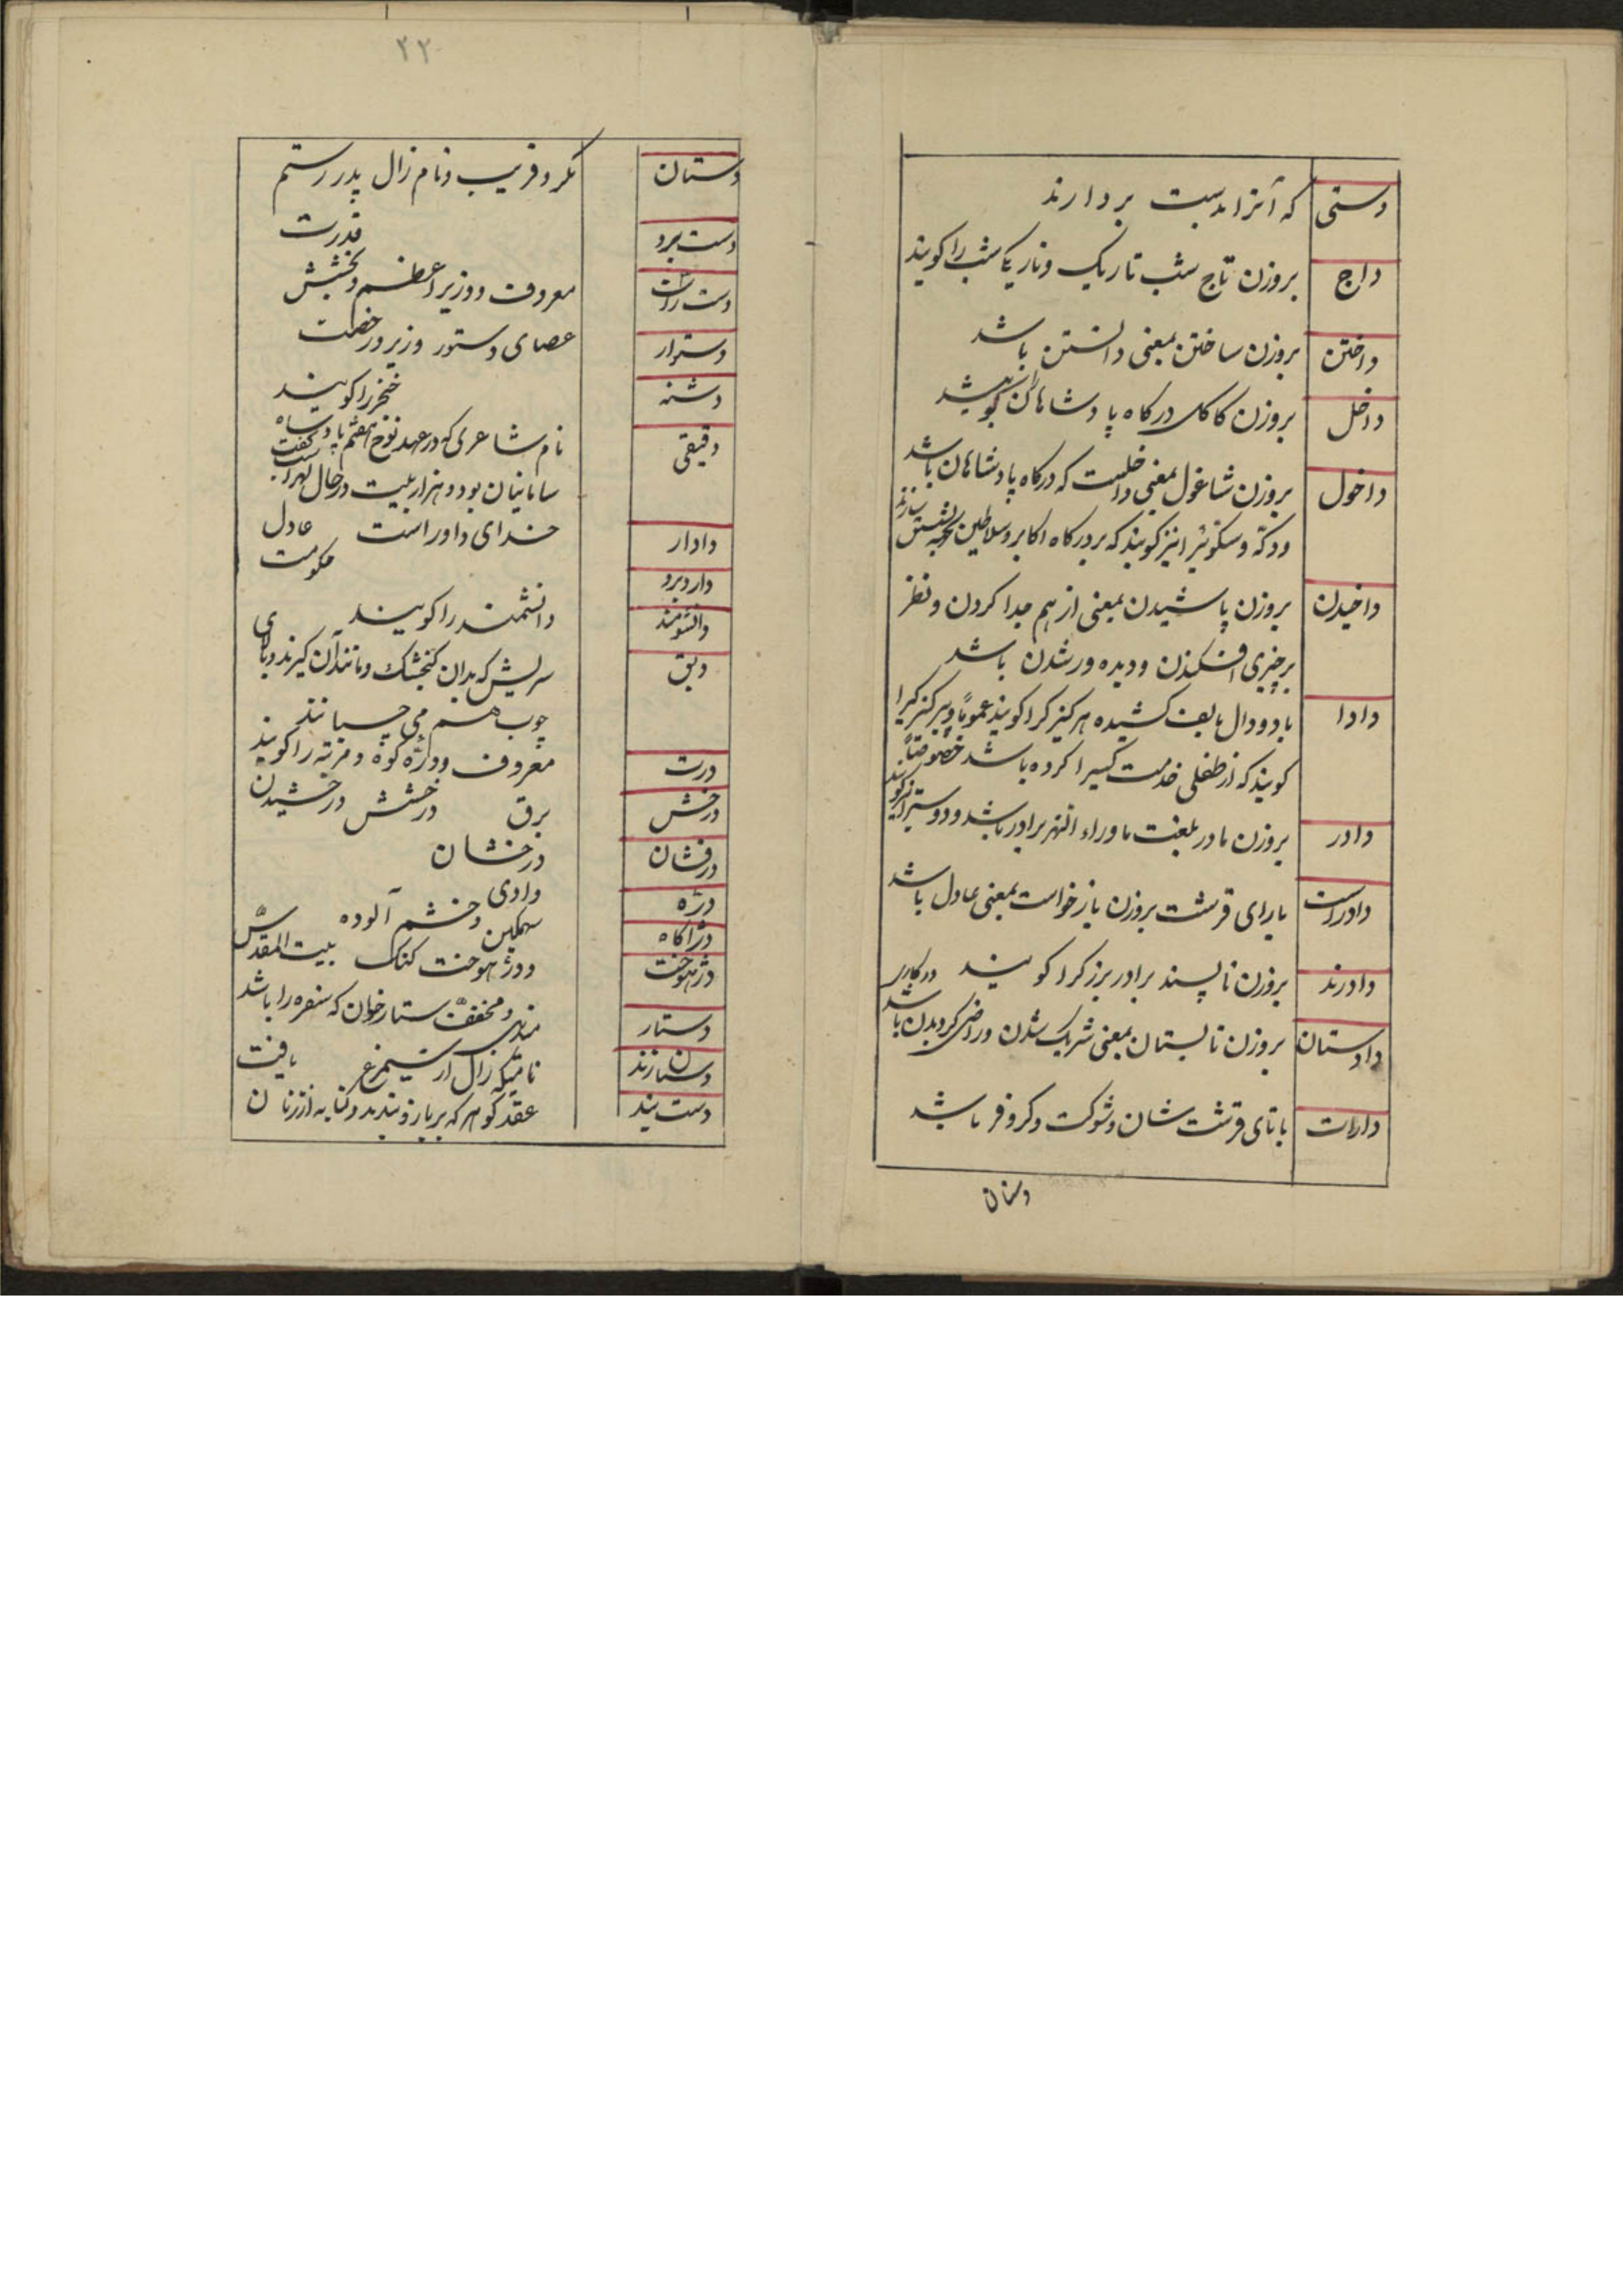 دستی که آنرا بدست بردارند
داج بروزن تاج شب تاریک و تاریکی شب را کویند
داختن بروزن ساختن بمعنی دانستن باشد
داخل بروزن کاکل درکاه پادشاهان را کویند
داخول بروزن شاغول بمعنی داخلست که درکاه پادشاهان باشد
ودکه وسکوئیرا نیز کویند که بر درکاه اکابر وسلاطین بجهة نشستن سازند
داخیدن بروزن پاشیدن بمعنی از هم جدا کردن و نظر
بر چیزی افکندن ودیده ور شدن باشد
دادا با دو دال بالف کشیده هر کنیزکرا کویند عموماً و پیر کنیزکیرا
کویند که از طفلی خدمت کسیرا کرده باشد خصوصاً
دادر بروزن مادر بلغت ماوراء النهر برادر باشد ودوستیرا نیز کویند
دادراست بارای قرشت بروزن بازخواست بمعنی عادل باشد
دادرند بروزن ناپسند برادر بزرکرا کویند
دادستان بروزن تابستان بمعنی شریک شدن وراضی کردیدن باشد در کاری
دارات باتای قرشت شان وشوکت وکروفر باشد
دستان
۲۲
دستان مکر وفریب ونام زال پدر رستم
دست برد قدرت
معروف ووزیر اعظم وبخشش
دستوار عصای دستور وزیر ورخصت
دشنه خنجر را کویند
دقیقی نام شاعری که در عهد نوح هفتم پادشاه
سامانیان بود وهزار بیت در حال لهراسب گفت
دادار خدای داور است عادل
داروبرد حکومت
دانشومند دانشمند را کویند
دبق سریش که بدان کنجشک ومانند آن کیرند
چوب هم می چسبانند
درت معروف
درخش برق درخشش درخشیدن
درفشان درخشان
دژه وادی
دژاکاه سهمکین وخشم آلوده
دژهوخت ودژهوخت کنک بیت المقدس
دستار ومخفف دستارخوان که سفره را باشد
دستان زند نامیکه زال از سیمرغ یافت
دست بند عقد کوهر که بر بازو بندند وکنایه از زنان